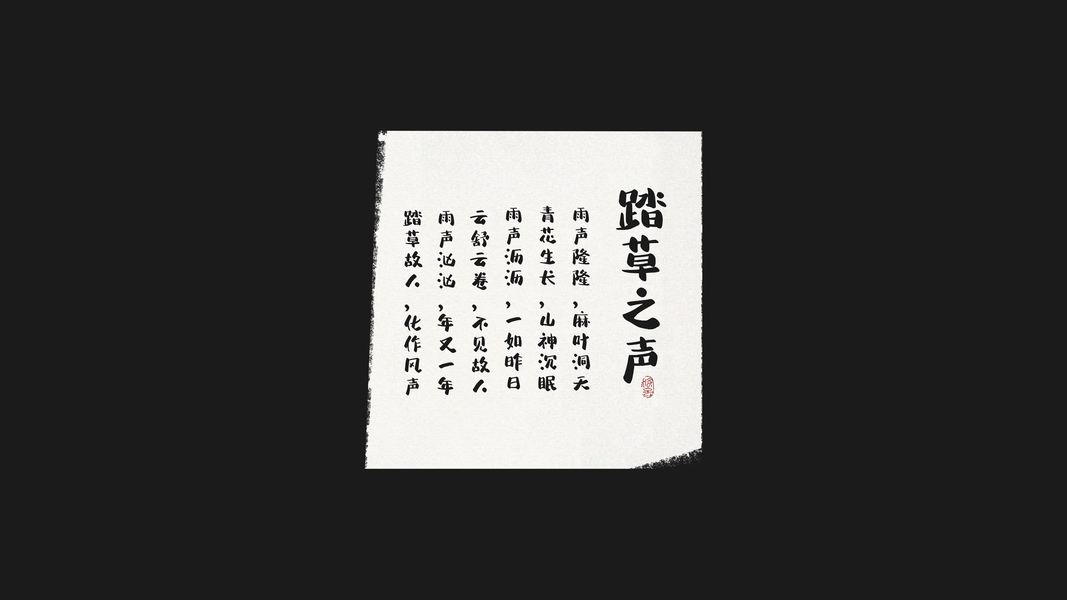 踏草之声
雨声隆隆,麻叶洞天
青花生长,山神沉眠
雨声沥沥,一如昨日
云舒云卷,不见故人
雨声汹汹,年又一年
踏草故人,化作风声